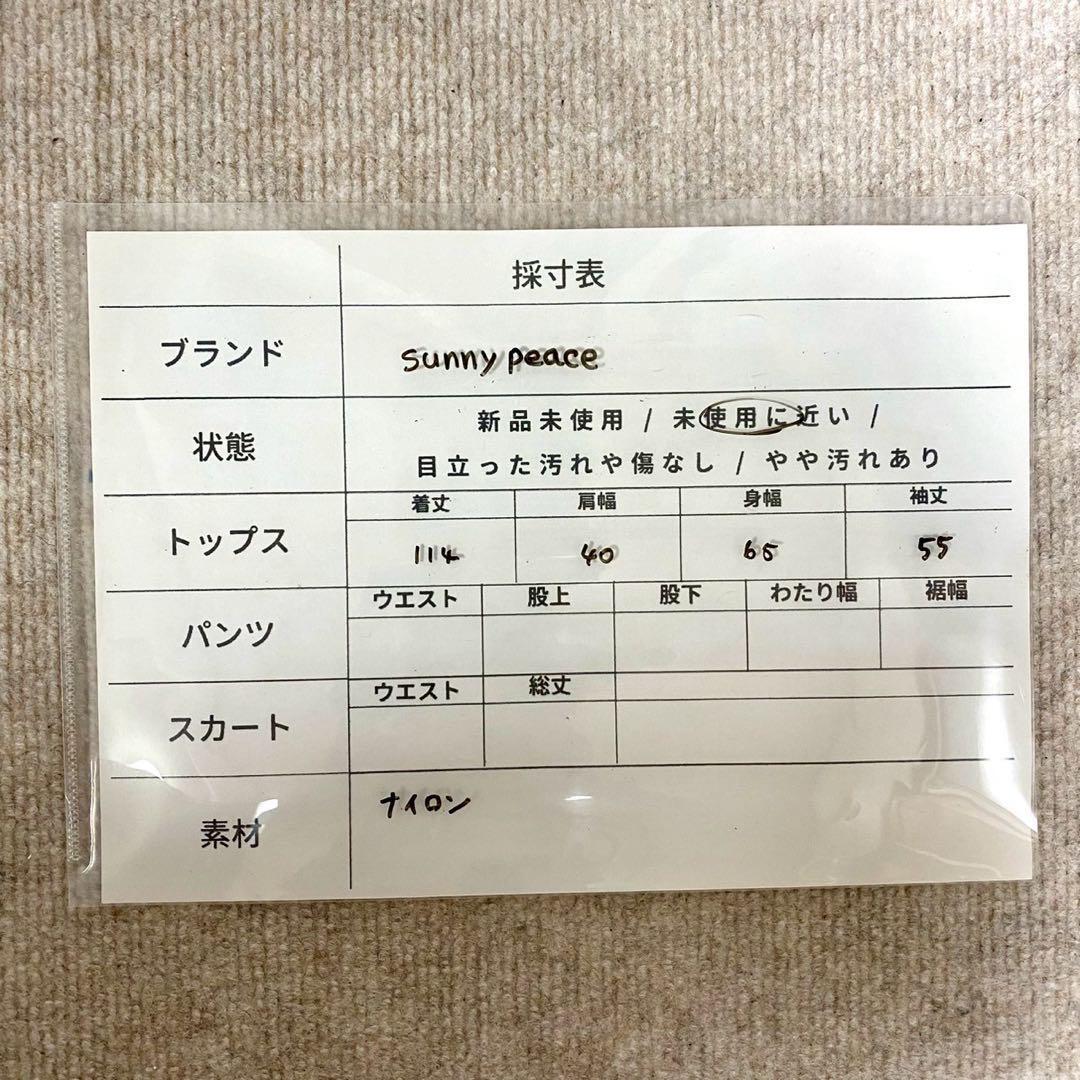 採寸表
ブランド sunny peace
状態 新品未使用 / 未使用に近い /
目立った汚れや傷なし / やや汚れあり
トップス 着丈 肩幅 身幅 袖丈
114 40 65 55
パンツ ウエスト 股上 股下 わたり幅 裾幅
スカート ウエスト 総丈
素材 ナイロン